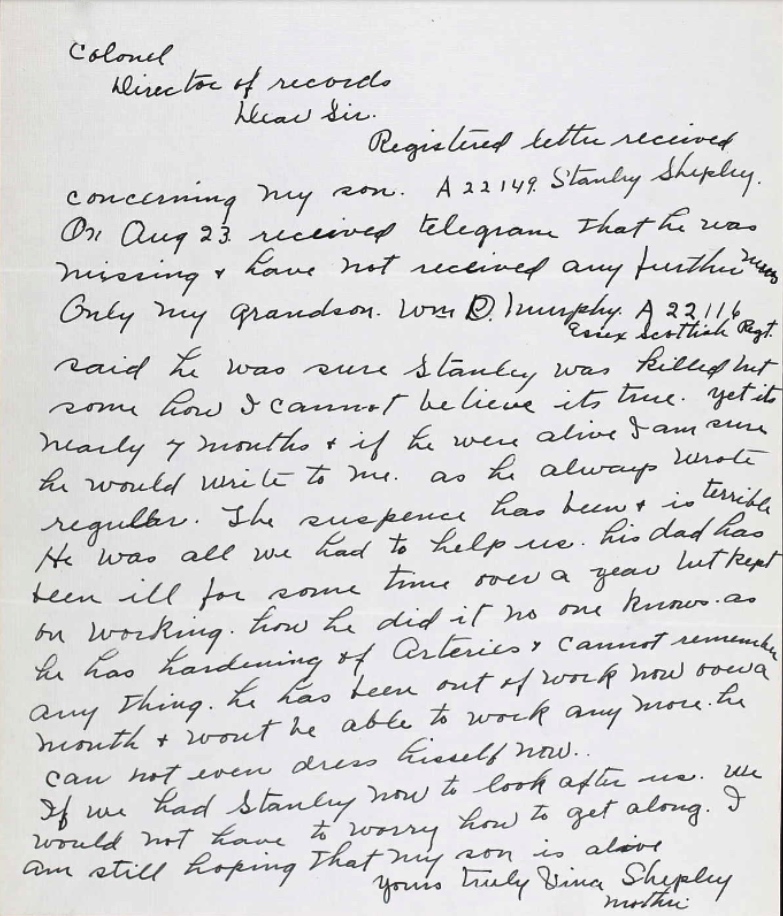 Colonel
Director of records
Dear Sir.
Registered letter received
concerning my son. A 22149. Stanley Shepley.
On Aug 23. received telegram that he was
missing & have not received any further news
Only my grandson. Wm D. Murphy. A 22116
Essex Scottish Regt.
said he was sure Stanley was killed but
some how I cannot believe its true. yet its
nearly 7 months & if he were alive I am sure
he would write to me. as he always wrote
reguller. The suspence has been & is terrible
He was all we had to help us. his dad has
been ill for some time over a year but kept
on working. how he did it no one knows. as
he has hardening of Arteries & cannot remember
any thing. he has been out of work now over a
month & wont be able to work any more. he
can not even dress hisself now..
If we had Stanley now to look after us. we
would not have to worry how to get along. I
am still hoping that my son is alive
yours truly Vina Shepley
mother